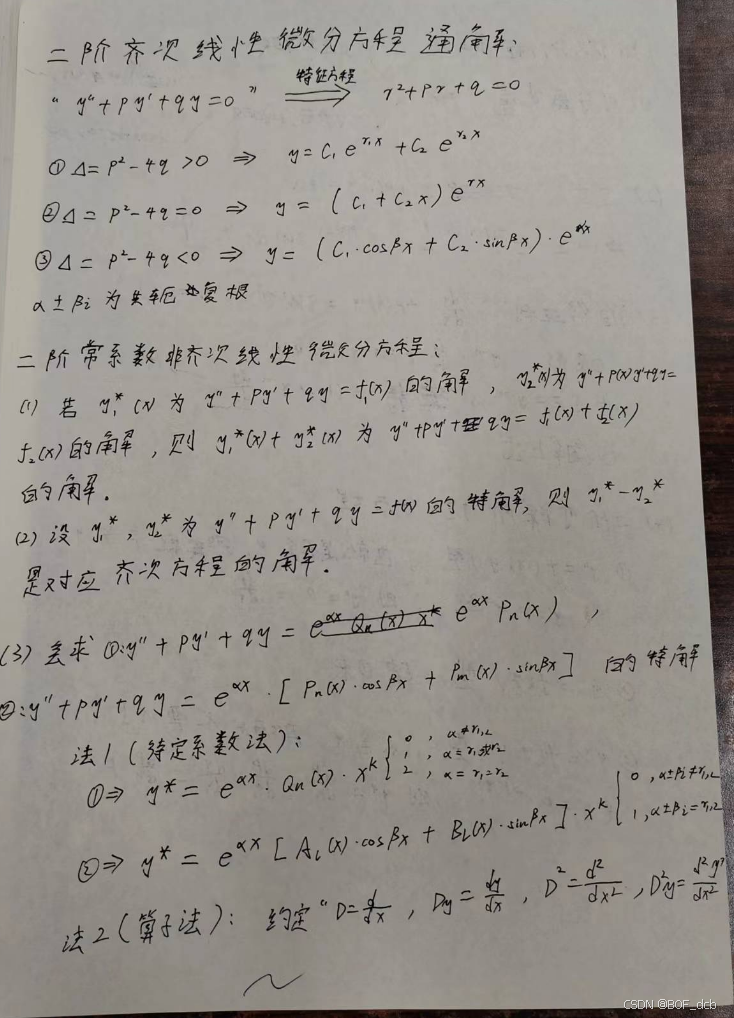 二阶齐次线性微分方程通解:
“ y″+py′+qy=0 ” ⟹(特征方程) r²+pr+q=0
①Δ=p²-4q>0 ⇒ y=C₁e^{r₁x}+C₂e^{r₂x}
②Δ=p²-4q=0 ⇒ y=(C₁+C₂x)e^{rx}
③Δ=p²-4q<0 ⇒ y=(C₁·cosβx+C₂·sinβx)·e^{αx}
α±βi为共轭复根
二阶常系数非齐次线性微分方程:
(1) 若 y₁*(x) 为 y″+py′+qy=f₁(x) 的解, y₂*(x)为 y″+p(x)y′+qy=
f₂(x)的解,则 y₁*(x)+y₂*(x) 为 y″+py′+qy=f₁(x)+f₂(x)
的解.
(2) 设 y₁*, y₂* 为 y″+py′+qy=f(x) 的特解, 则 y₁*-y₂*
是对应齐次方程的解.
(3) 去求①:y″+py′+qy= e^{αx}Pn(x) ,
②:y″+py′+qy=e^{αx}·[Pn(x)·cosβx+Pm(x)·sinβx] 的特解
法1(待定系数法):
①⇒ y*=e^{αx}·Qn(x)·x^k { 0, α≠r₁,₂
1, α=r₁或r₂
2, α=r₁=r₂
②⇒ y*=e^{αx}[A_l(x)·cosβx+B_l(x)·sinβx]·x^k { 0, α±βi≠r₁,₂
1, α±βi=r₁,₂
法2(算子法): 约定“D=d/dx, Dy=dy/dx, D²=d²/dx², D²y=d²y/dx²
CSDN @BOF_dcb